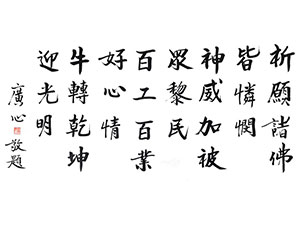 祈願諸佛
皆憐憫
神威加被
眾黎民
百工百業
好心情
牛轉乾坤
迎光明
廣心敬題